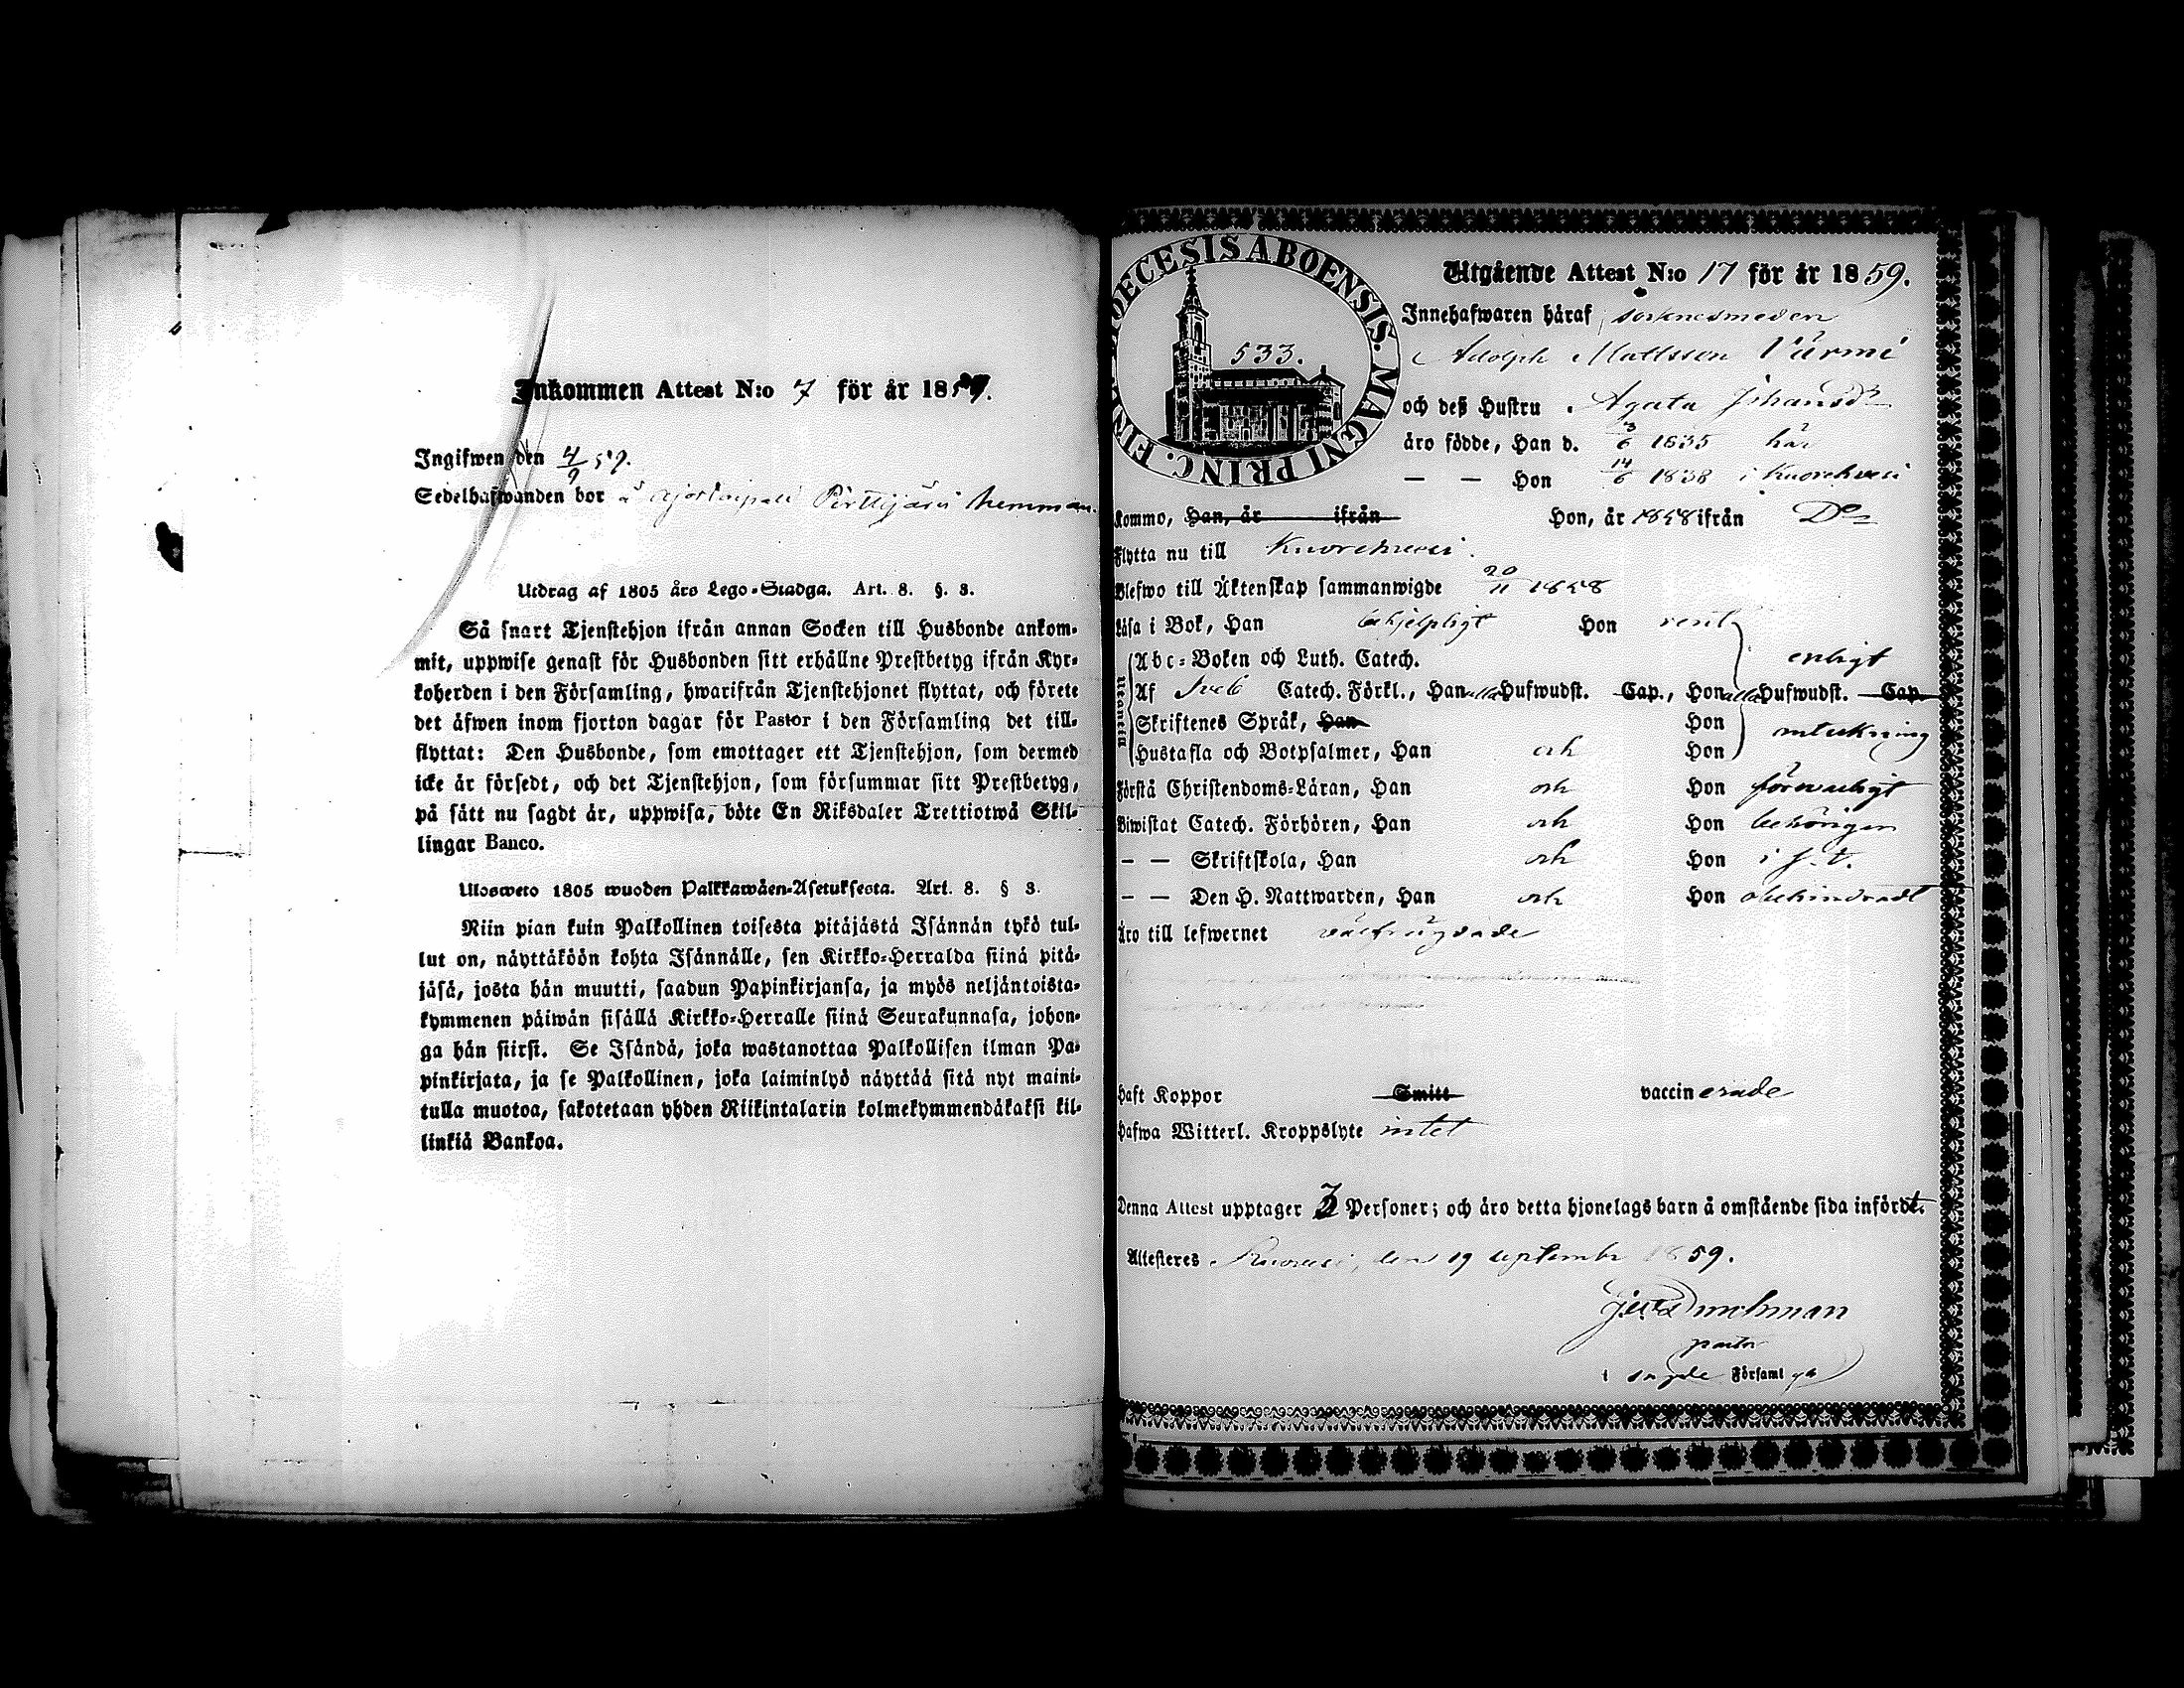 Inkommen Attest N:o 7 för år 1859.
Ingifwen den 4/9 59.
Sedelhafwanden bor å Pirttijärvi hemman.
Utdrag af 1805 års Lego-Stadga. Art. 8. §. 3.
Så snart Tjenstehjon ifrån annan Socken till Husbonde ankom-
mit, uppwise genast för Husbonden sitt erhållne Prestbetyg ifrån Kyr-
koherden i den Församling, hwarifrån Tjenstehjonet flyttat, och förete
det äfwen inom fjorton dagar för Pastor i den Församling det till-
flyttat: Den Husbonde, som emottager ett Tjenstehjon, som dermed
icke är försedt, och det Tjenstehjon, som försummar sitt Prestbetyg,
på sätt nu sagdt är, uppwisa, böte En Riksdaler Trettiotwå Skil-
lingar Banco.
Ulosweto 1805 wuoden Palkkawäen-Asetuksesta. Art. 8. § 3.
Niin pian kuin Palkollinen toisesta pitäjästä Isännän tykö tul-
lut on, näyttäköön kohta Isännälle, sen Kirkko-Herralda siinä pitä-
jäsä, josta hän muutti, saadun Papinkirjansa, ja myös neljäntoista-
kymmenen päiwän sisällä Kirkko-Herralle siinä Seurakunnasa, johon-
ga hän siirsi. Se Isändä, joka wastanottaa Palkollisen ilman Pa-
pinkirjata, ja se Palkollinen, joka laiminlyö näyttää sitä nyt maini-
tulla muotoa, sakotetaan yhden Riikintalarin kolmekymmendäkaksi kil-
linkiä Bankoa.
DIOECESIS ABOENSIS. MAGNI PRINC. FINL.
533.
Utgående Attest N:o 17 för år 1859.
Innehafwaren häraf, socknesmeden
Adolph Mattsson Värmi
och deß Hustru Agata Johansdr
äro födde, Han d. 3/6 1835 här
— — Hon 14/6 1838 i Kuorehvesi
Kommo, Han, år ifrån Hon, år 1858 ifrån Do
Flytta nu till Kuorehvesi.
Blefwo till Äktenskap sammanwigde 20/11 1858
Läsa i Bok, Han behjelpligt Hon rent
Utantill
Abc-Boken och Luth. Catech. enligt
Af Sveb Catech. Förkl., Han alla Hufwudst. Cap., Hon alla Hufwudst. Cap.
Skriftenes Språk, Han Hon anteckning
Hustafla och Botpsalmer, Han och Hon
Förstå Christendoms-Läran, Han och Hon försvarligt
Biwistat Catech. Förhören, Han och Hon behörigen
— — Skriftskola, Han och Hon i s. t.
— — Den H. Nattwarden, Han och Hon obehindradt
Äro till lefwernet välfrägdade
Haft Koppor Smitt vaccinerade
Hafwa Witterl. Kroppslyte intet
Denna Attest upptager 3 Personer; och äro detta hjonelags barn å omstående sida infördt.
Attesteres Kuorevesi, den 19 septembr 1859.
pastor
i sagde Församl gh